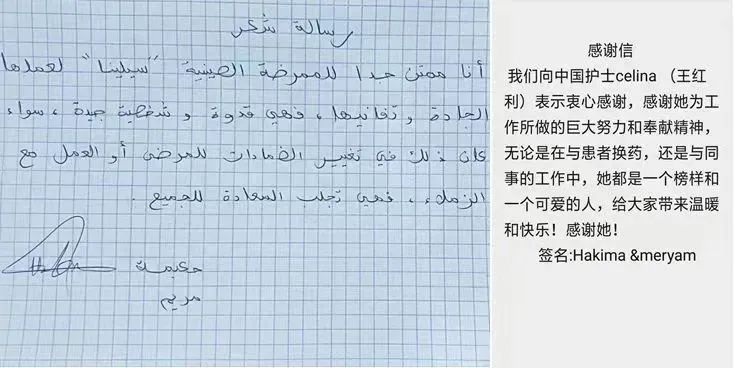 رسالة شكر
أنا ممتن جدا للممرضة الصينية "سيلينا" لعملها
الجادة و تفانيها، فهي قدوة و شخصية جيدة، سواء
كان ذلك في تغيير الضمادات للمرضى أو العمل مع
الزملاء، فهي تجلب السعادة للجميع.
حكيمة
مريم
感谢信
我们向中国护士celina （王红
利）表示衷心感谢，感谢她为工
作所做的巨大努力和奉献精神，
无论是在与患者换药，还是与同
事的工作中，她都是一个榜样和
一个可爱的人，给大家带来温暖
和快乐！感谢她！
签名:Hakima &meryam